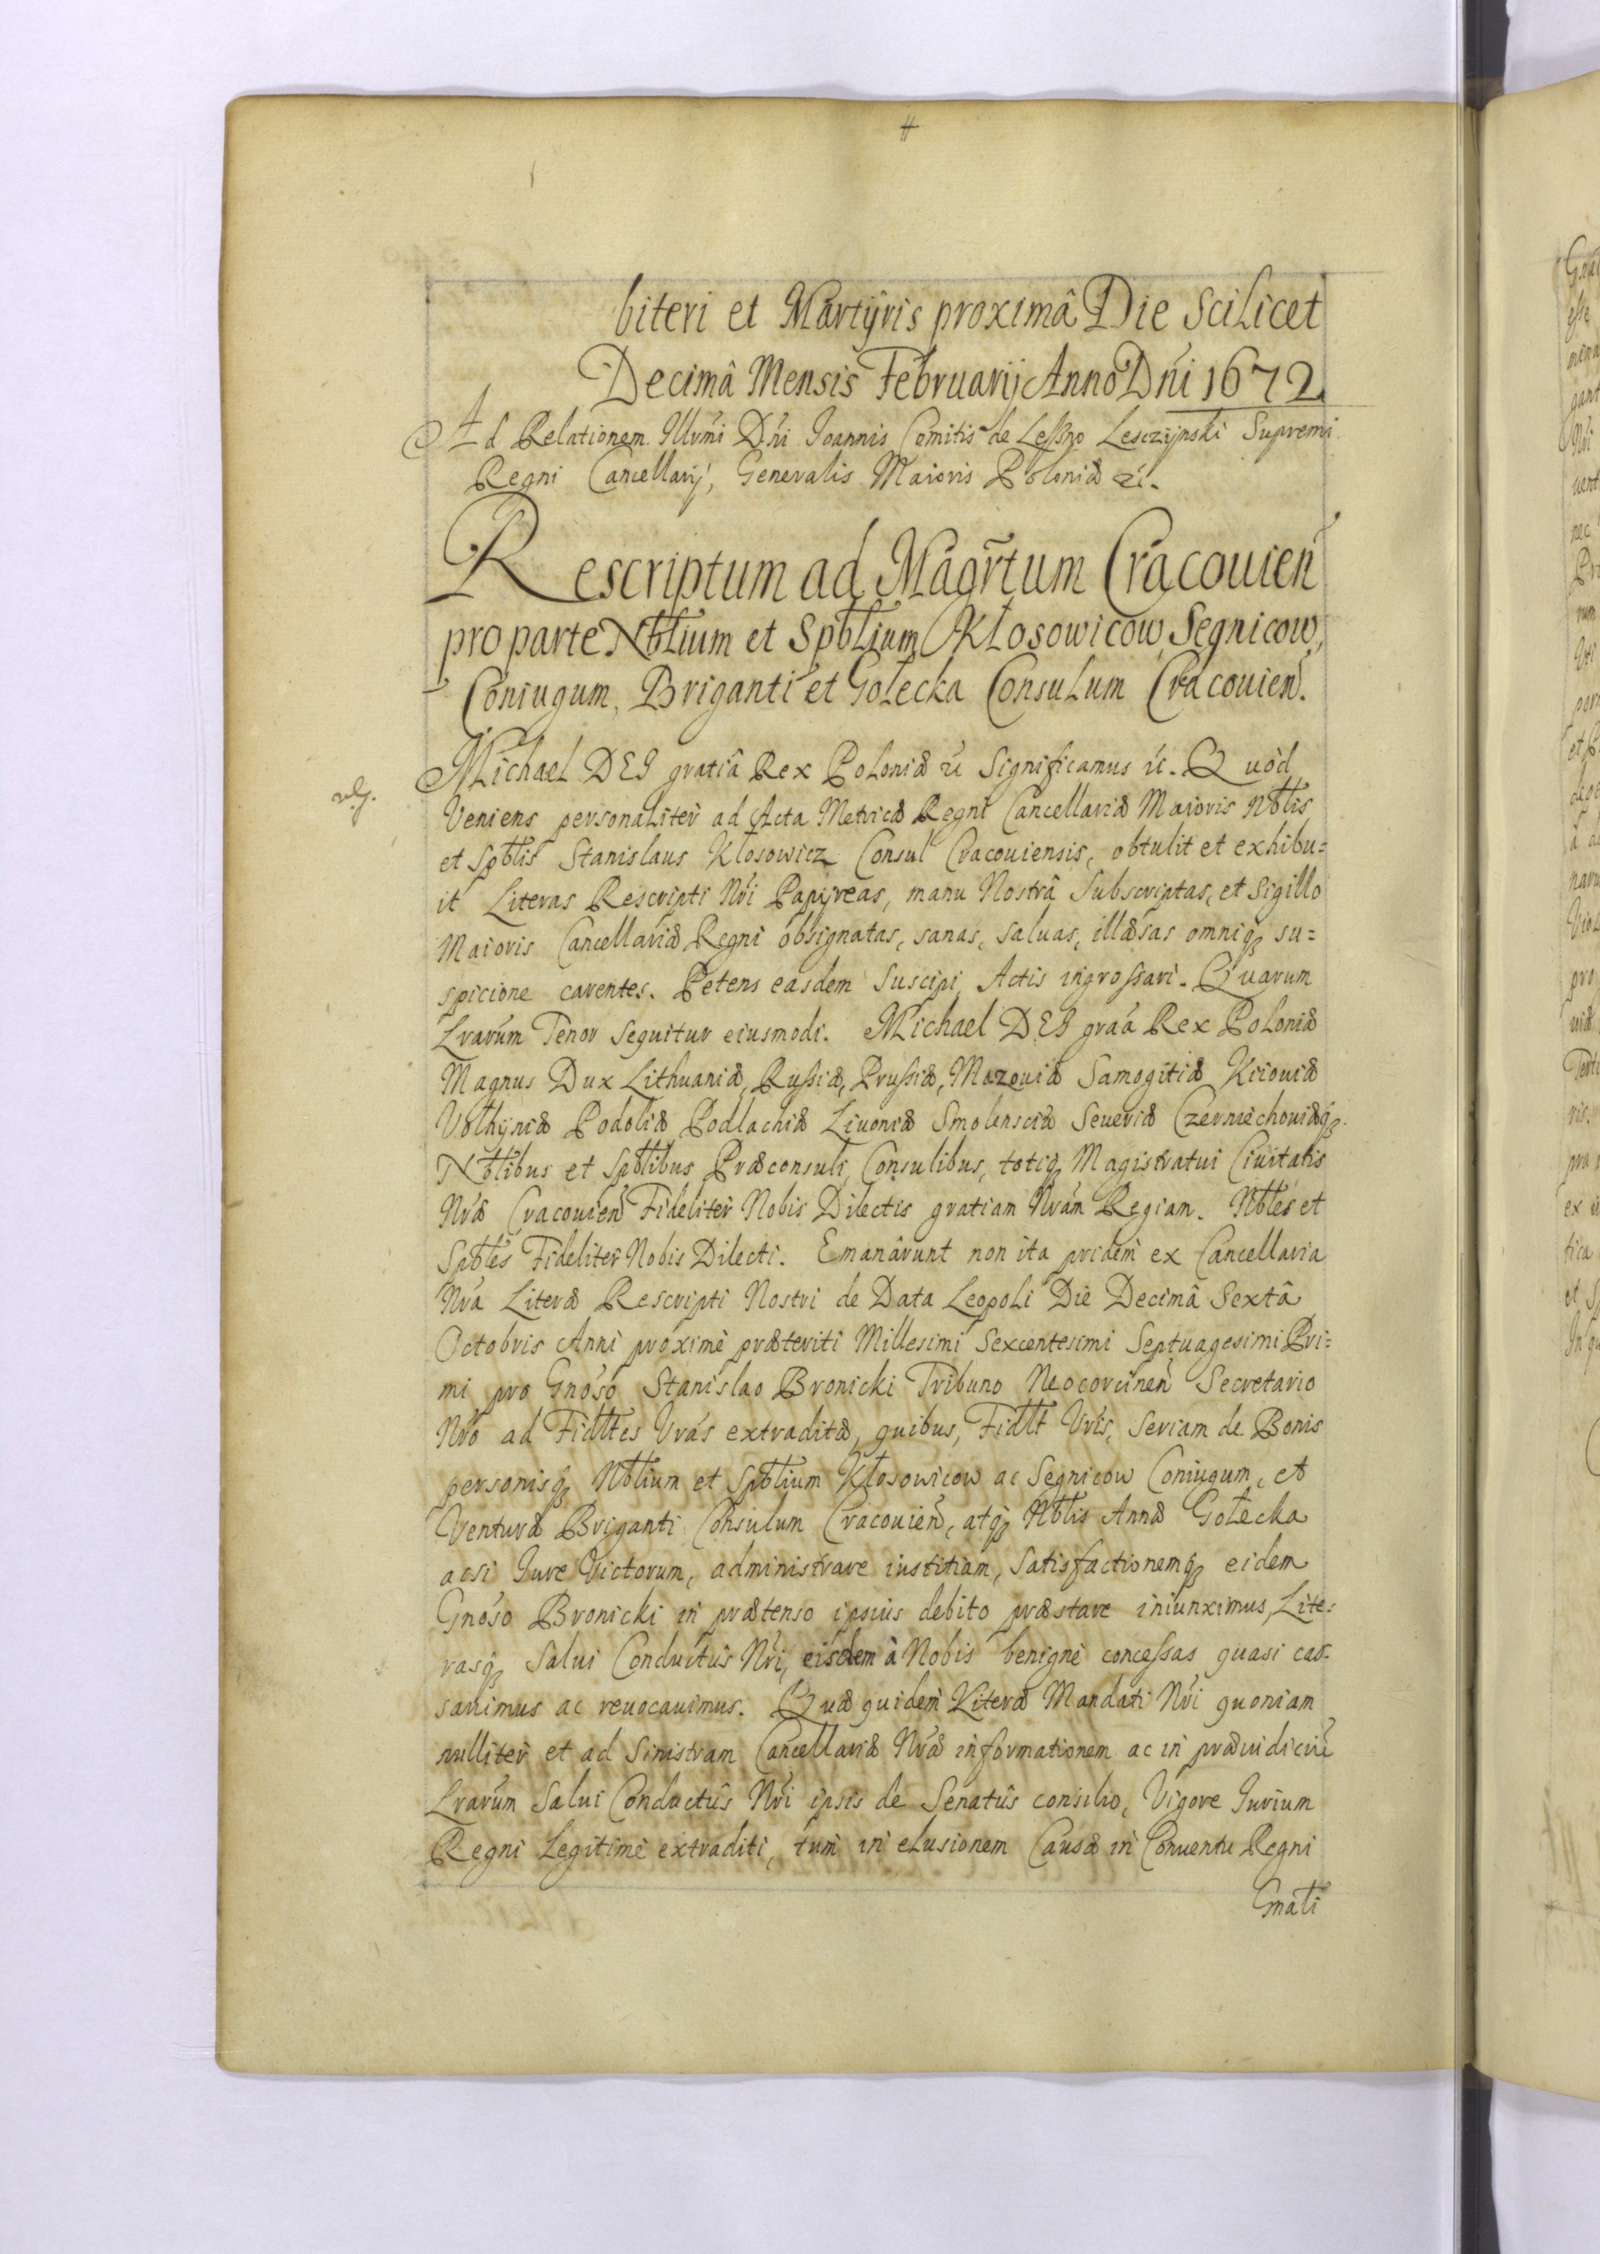 biteri et Martÿris proximâ Die Scilicet
Decimâ Mensis Februarij Anno Dñi 1672
Ad Relationem Illvmi Dñi Joannis Comitis de Leßno Lesczÿnski Supremi
Regni Cancellarij, Generalis Maioris Poloniæ
Rescriptum ad Mãgr̃tum Cracouien̄
pro parte Nb̃lium et Spb̃lium Kłosowicow, Segnicow,
Coniugum, Briganti et Gołecka Consulum Cracouień.
Michael DEI gratiâ Rex Poloniæ Significamus Quòd
Veniens personaliter ad Acta Metricæ Regni Cancellariæ Maioris Nb̃lis
et Spb̃lis Stanislaus Kłosowicz Consul Cracouiensis, obtulit et exhibu=
it Literas Rescripti Nr̃i Papÿreas, manu Nostrâ Subscriptas, et Sigillo
Maioris Cancellariæ Regni obsignatas, sanas, saluas, illæsas omniq; su=
spicione carentes. Petens easdem Suscipi Actis ingrossari. Quarum
Lrarum Tenor Sequitur eiusmodi. Michael DEI graâ Rex Poloniæ
Magnus Dux Lithuaniæ, Rußiæ, Prußiæ, Mazouiæ Samogitiæ Kiiouiæ
Volhÿniæ Podoliæ Podlachiæ Liuoniæ Smolensciæ Seueriæ Czerniechouiæq;
Nb̃libus et Spb̃libus Præconsuli, Consulibus, totiq; Magistratui Ciuitatis
Nræ Cracouień Fideliter Nobis Dilectis gratiam Nrãm Regiam. Nb̃les et
Spb̃les Fideliter Nobis Dilecti. Emanârunt non ita pridem ex Cancellaria
Nrã Literæ Rescripti Nostri de Data Leopoli Die Decimâ Sextâ
Octobris Anni proximè præteriti Millesimi Sexcentesimi Septuagesimi Pri=
mi pro Gnõso Stanislao Bronicki Tribuno Neocorcinen̄ Secretario
Nrõ ad Fidlt̃es Vrãs extraditæ, quibus, Fidlt̃ Vrĩs, Seriam de Bonis
personisq; Nb̃lium et Spb̃lium Kłosowicow ac Segnicow Coniugum, et
Venturæ Briganti Consulum Cracouień, atq; Nb̃lis Annæ Gołecka
acsi Jure Victorum, administrare iustitiam, Satisfactionemq; eidem
Gnõso Bronicki in prætenso ipsius debito præstare iniunximus, Lite=
rasq; Salui Conductûs Nrĩ, eisdem à Nobis benignè concessas quasi cas=
sauimus ac reuocauimus. Quæ quidem Literæ Mandati Nrĩ quoniam
nulliter et ad Sinistram Cancellariæ Nræ informationem ac in præiudiciũ
Lrarum Salui Conductûs Nrĩ ipsis de Senatûs consilio, Vigore Jurium
Regni Legitimè extraditi, tum in elusionem Causæ in Conuentu Regni
Gnãli